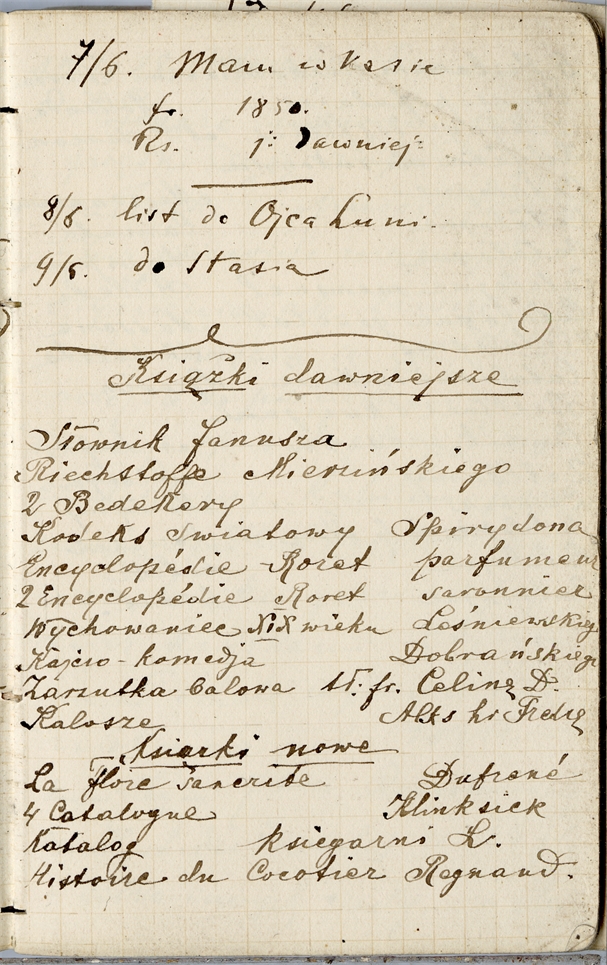 7/6. Mam w Kasie
fr. 1850.
Rs. j: dawniej
8/6. list do Ojca Luni.
9/6. do Stasia
Książki dawniejsze
Słownik Janusza
Riechstoffe Mierzińskiego
2 Bedekery
Kodeks Swiatowy Spirydona
Encyclopédie Roret parfumeur
2 Encyclopédie Roret savonnier
Wychowaniec XIX wieku Leśniewskiej
Kajcio - komedja Dobrańskiego
Zarzutka balowa tł: fr. Celina D.
Kalosze Alks hr Fredry
Książki nowe
La flore sanscrite Dufrené
4 Catalogue Klinksick
Katalog księgarni K.
Histoire du Cocotier Regnaud.